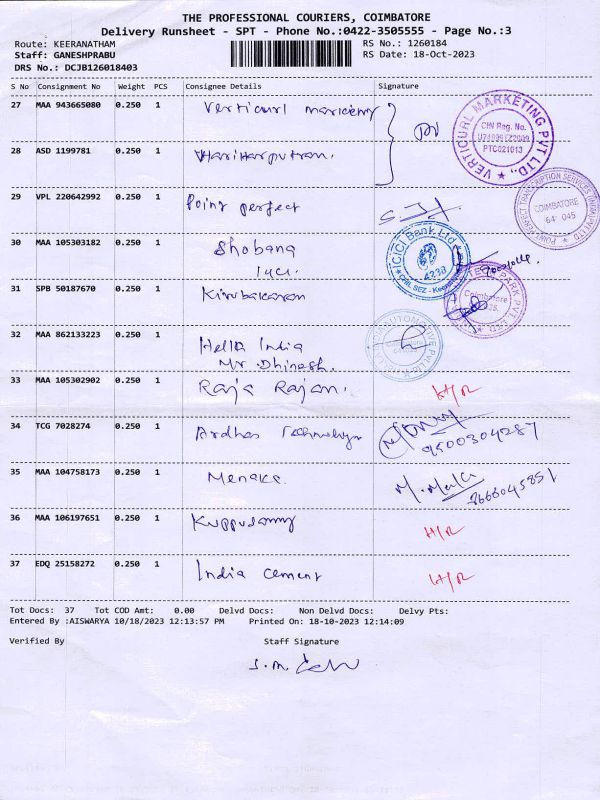 THE PROFESSIONAL COURIERS, COIMBATORE
Delivery Runsheet - SPT - Phone No.:0422-3505555 - Page No.:3
Route: KEERANATHAM
RS No.: 1260184
Staff: GANESHPRABU
RS Date: 18-Oct-2023
DRS No.: DCJB126018403
S No Consignment No Weight PCS Consignee Details Signature
27 MAA 943665080 0.250 1 Verticurl
VERTICURL MARKETING PVT LTD.,
CIN Reg. No.
28 ASD 1199781 0.250 1 Hariharputran.
29 VPL 220642992 0.250 1 Point perfect
COIMBATORE
641 045
30 MAA 105303182 0.250 1 Shobana
ICICI Bank Ltd
31 SPB 50187670 0.250 1 Kirubakaran
Coimbatore
32 MAA 862133223 0.250 1 Hella India
Mr Dhinesh.
33 MAA 105302902 0.250 1 Raja Rajan. H/R
34 TCG 7028274 0.250 1 Technology
9500304287
35 MAA 104758173 0.250 1 Menaka.
36 MAA 106197651 0.250 1 Kuppusamy H/R
37 EDQ 25158272 0.250 1 India cement H/R
Tot Docs: 37 Tot COD Amt: 0.00 Delvd Docs: Non Delvd Docs: Delvy Pts:
Entered By :AISWARYA 10/18/2023 12:13:57 PM Printed On: 18-10-2023 12:14:09
Verified By Staff Signature